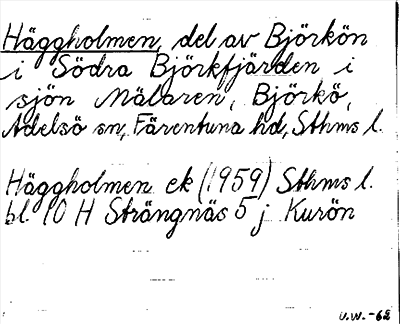 Häggholmen, del av Björkön
i Södra Björkfjärden i
sjön Mälaren, Björkö,
Adelsö sn, Färentuna hd, Sthms l.
Häggholmen ek (1959) Sthms l.
bl. 10 H Strängnäs 5 j Kurön
U.W.-62